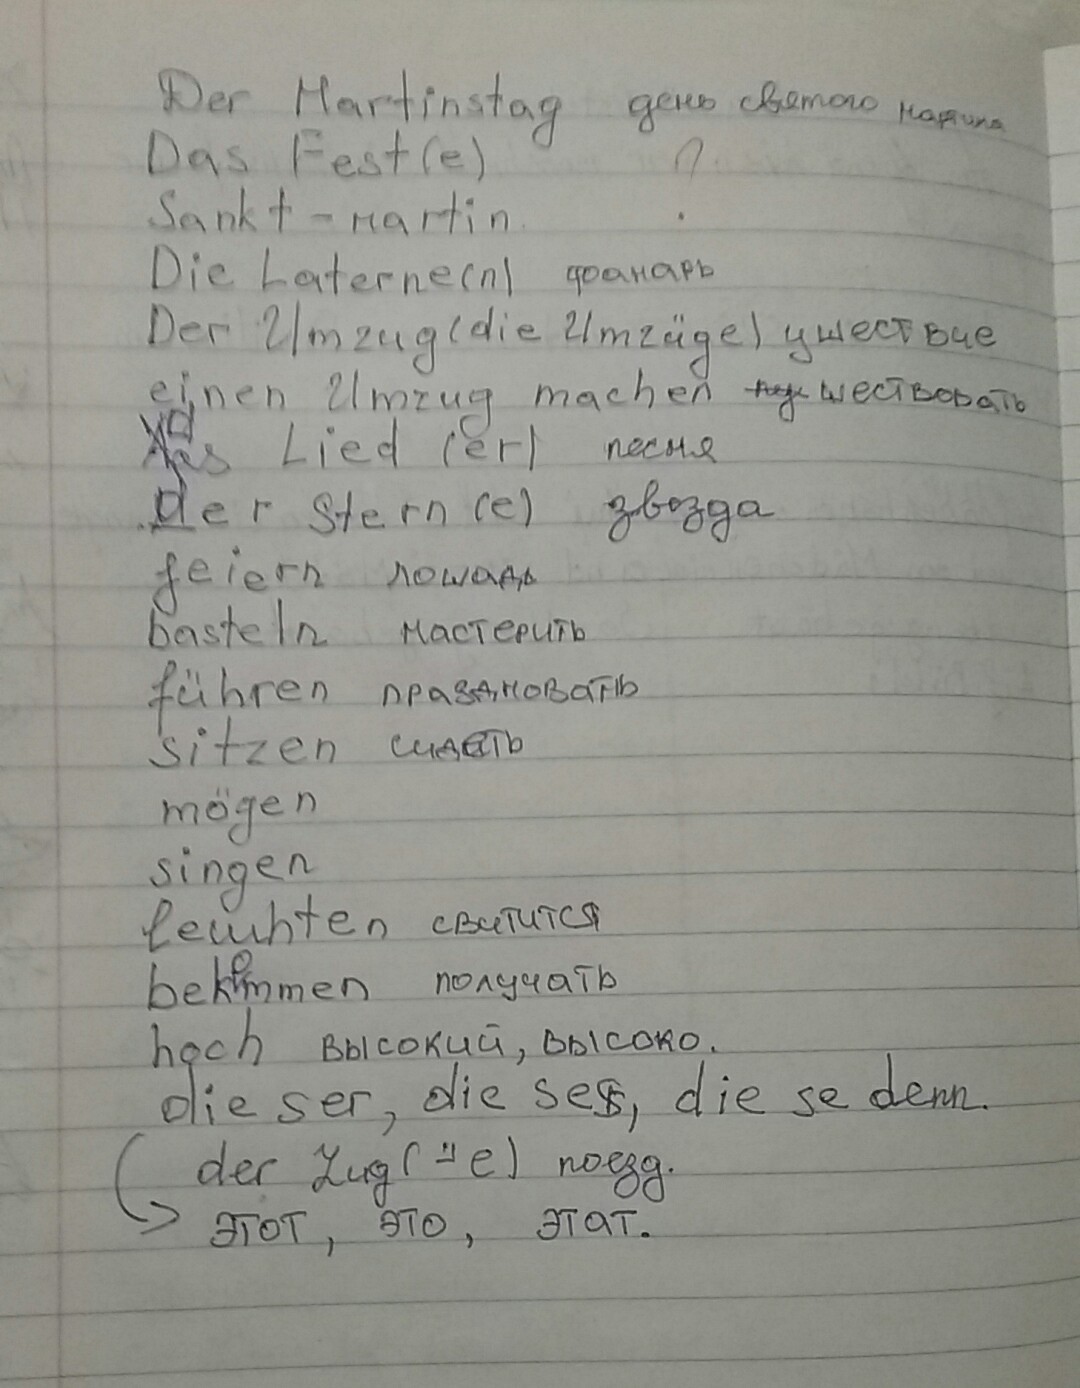 Der Martinstag день святого мартина
Das Fest(e) ?
Sankt-Martin.
Die Laterne(n) фанарь
Der Umzug(die Umzüge) ушествие
einen Umzug machen шествовать
das Lied (er) песня
der Stern(e) звезда
feiern лошадь
basteln мастерить
führen празановать
sitzen сидеть
mögen
singen
leuchten свитится
bekommen получать
hoch высокий, высоко.
die ser, die ses, die se denn.
der Zug(⸚e) поезд.
этот, это, этат.